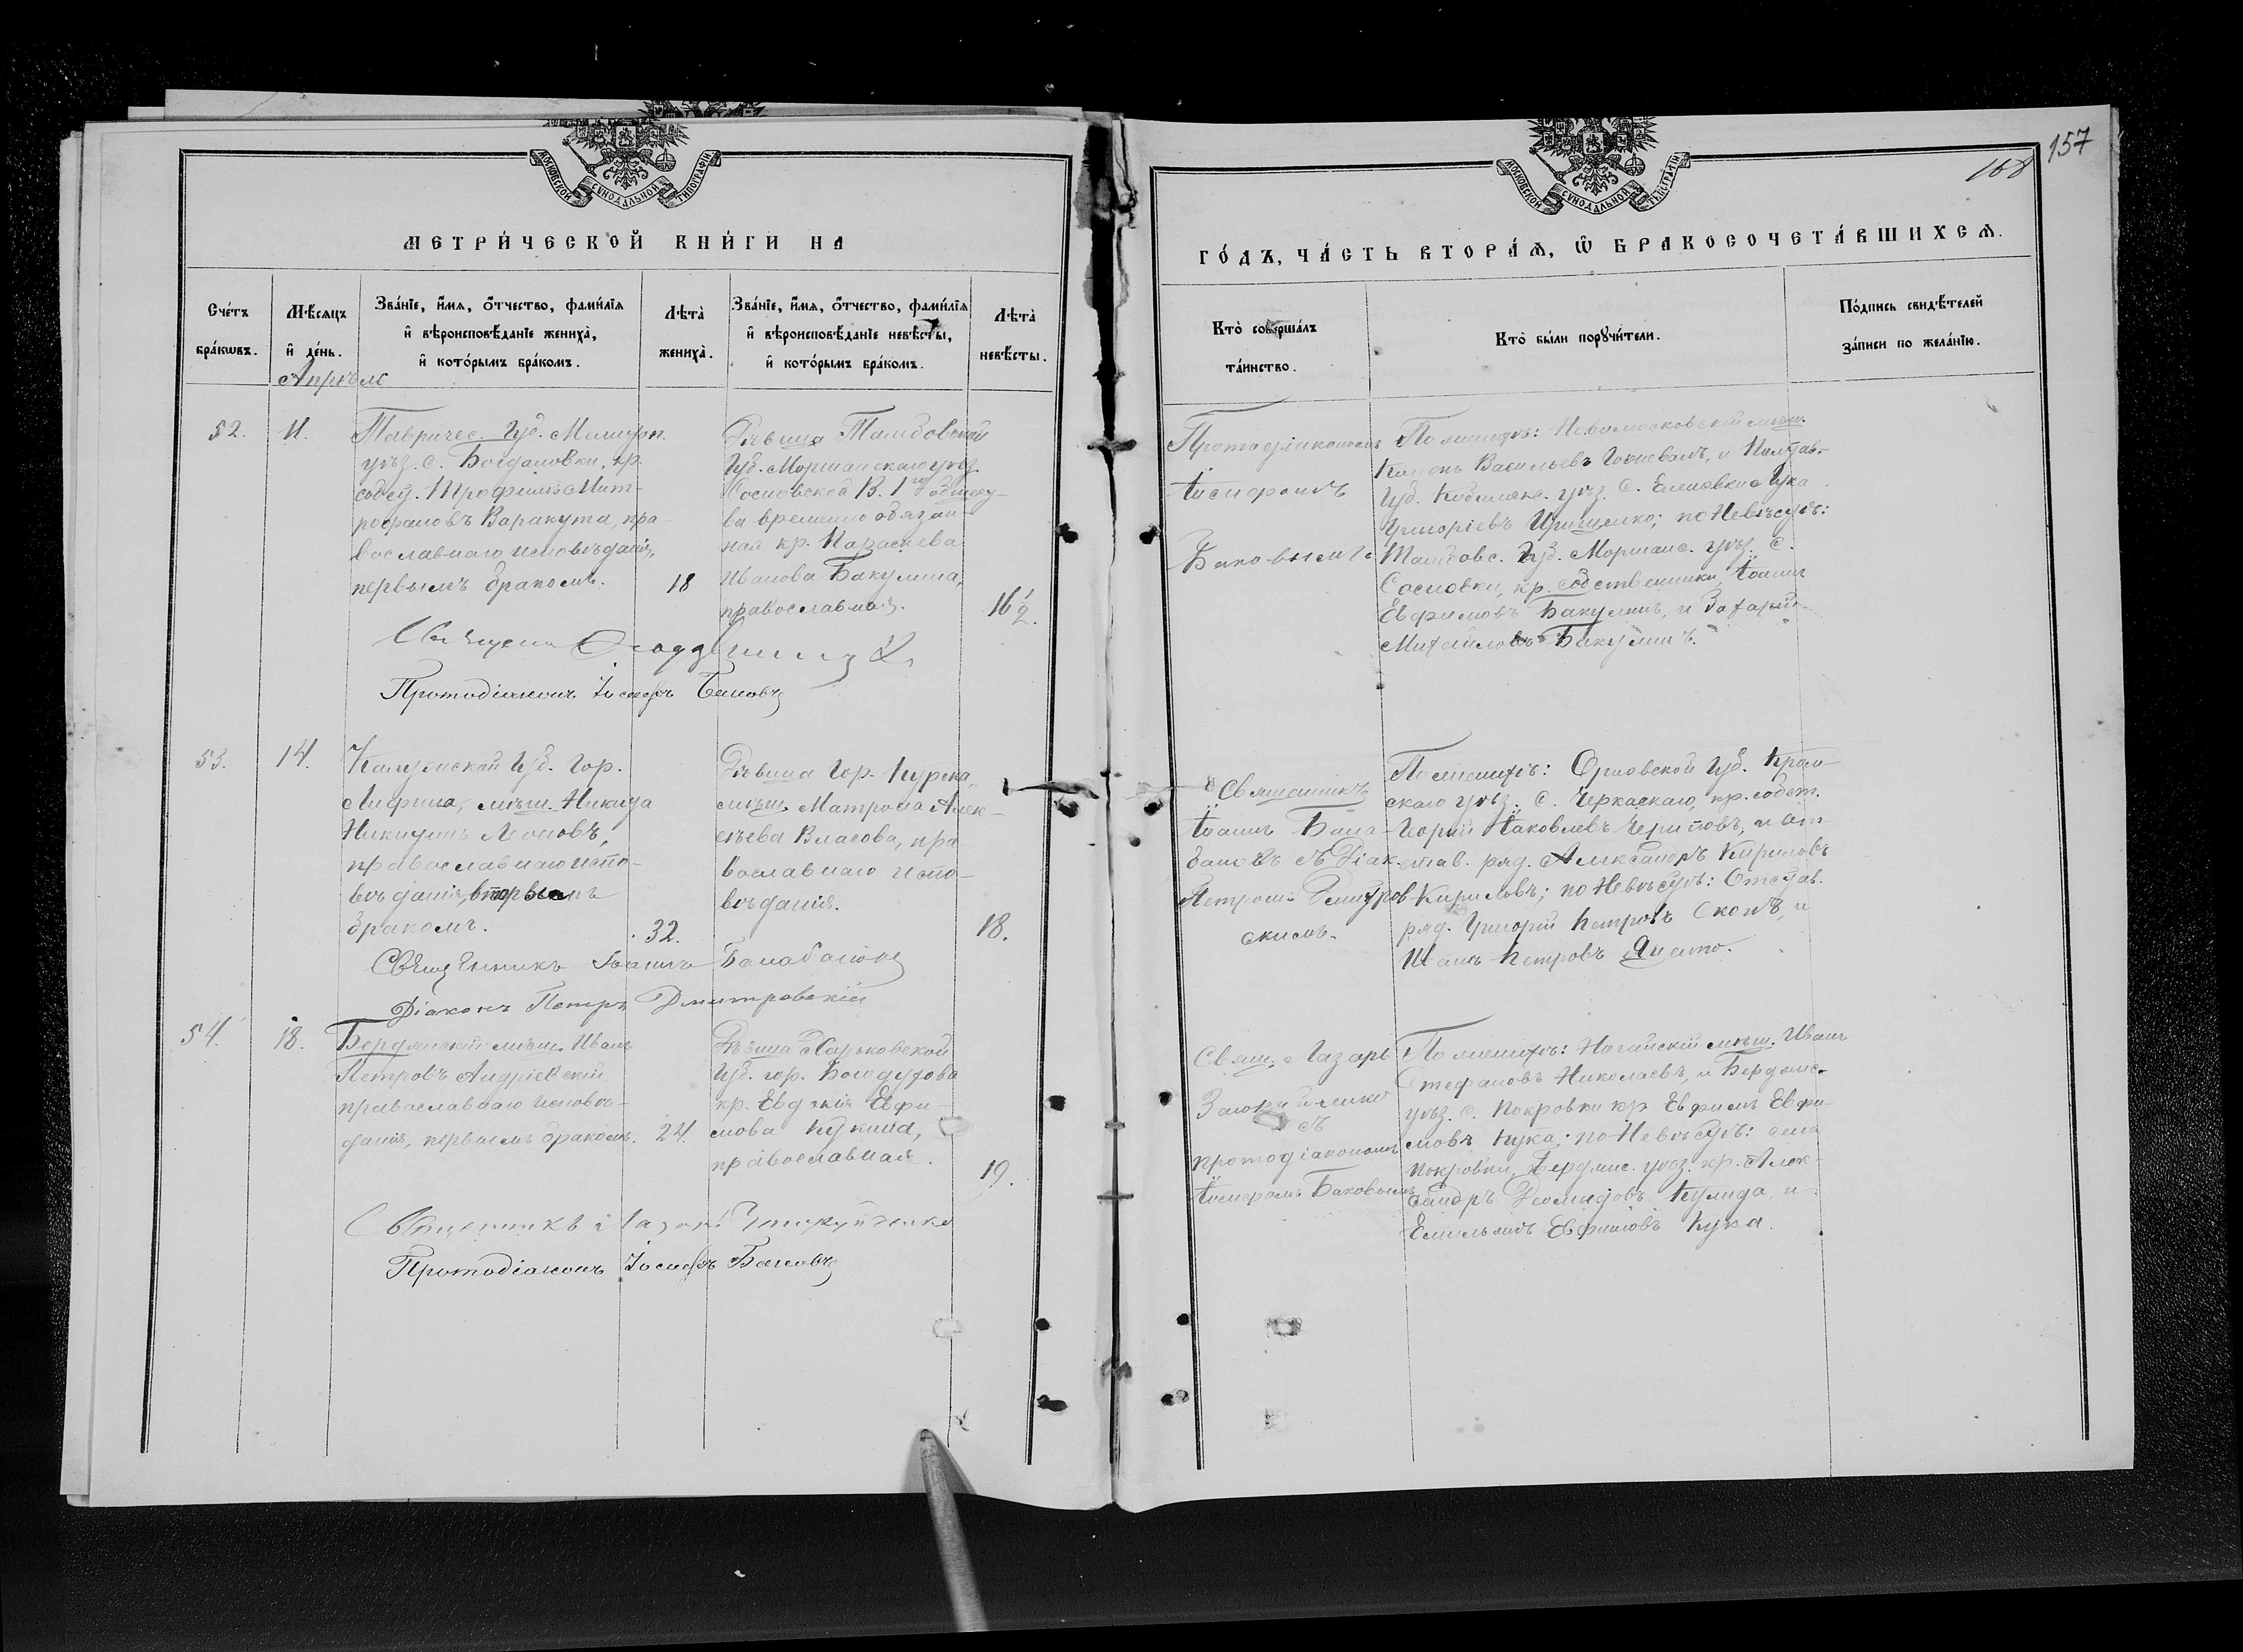 МОСКОВСКОЙ СѴНОДАЛЬНОЙ ТИПОГРАФІИ
МЕТРИ́ЧЕСКОЙ КНИ́ГИ НА
Сче́тъ бра́кωвъ.
Мѣ́сяцъ и҆ де́нь.
Зва́нїе, и҆́мѧ, ѻ҆́тчество, фами́лїѧ
и҆ вѣроисповѣ́данїе жениха̀,
и҆ кото́рымъ бра́комъ.
Лѣта̀ жениха̀.
Зва́нїе, и҆́мѧ, ѻ҆́тчество, фами́лїѧ
и҆ вѣроисповѣ́данїе невѣ́сты,
и҆ кото́рымъ бра́комъ.
Лѣта̀ невѣ́сты.
Апрѣль
52.
11.
Тавричес. Губ. Мелитоп.
уѣз. с. Богдановки, кр.
собст. Трофимъ Мит-
рофановъ Варакута, пра-
вославнаго исповѣданія,
первымъ бракомъ.
18
Дѣвица Тамбовской
Губ. Моршанскаго уѣз.
Сосновской В. 1го общес-
ва временно обязан-
ная кр. Параскева
Иванова Бакулина,
православная.
16 1/2.
Протодіаконъ Іосифъ Баковъ
53.
14.
Калужской Губ. Гор.
Лифина, мѣщ. Никита
Никитинъ Леоновъ,
православнаго испо-
вѣданія, вторымъ
бракомъ.
32.
Дѣвица Гор. Курска,
мѣщ. Матрона Алек-
сѣева Власова, пра
вославнаго испо-
вѣданія.
18.
Священникъ Іоаннъ Балабановъ
Діаконъ Петръ Дмитровскій
54.
18.
Бердянскій мѣщ. Иванъ
Петровъ Андріевскій,
православнаго исповѣ-
данія, первымъ бракомъ.
24.
Дѣвица Харьковской
Губ. гор. Богодухова
кр. Евдокія Евфи-
мова Кукина,
православная.
19.
Священникъ Лазарь
Протодіаконъ Іосифъ Баковъ
157
168
МОСКОВСКОЙ СѴНОДАЛЬНОЙ
ГО́ДЪ, ЧА́СТЬ ВТОРА́Ѧ, Ѽ БРАКОСОЧЕТА́ВШИХСѦ.
Кто̀ соверша́лъ та́инство.
Кто̀ бы́ли порꙋчи́тели.
По́дпись свидѣ́телей
за́писи по жела́нїю.
Протодіакономъ
Іосифомъ
Баковымъ
По женихѣ: Новомосковскій мѣщ.
Васильевъ и Полтав.
Губ. Кобеляк. уѣз. С. Еленовки Лука
Григоріевъ Грищенко; по Невѣстѣ:
Тамбовс. Губ. Моршанс. уѣз. С.
Сосновки, кр. собственники, Іоаннъ
Евфимовъ Бакулинъ, и Захарій
Михайловъ Бакулинъ.
Священникъ
Іоаннъ Бала-
бановъ съ Діак.
Петромъ Дмитров
скимъ.
По женихѣ: Орловской Губ. Кром-
скаго уѣз. С. Черкаскаго, кр. собст.
Яковлевъ и от-
став. ряд. Александръ Кириловъ
Кириловъ; по Невѣстѣ: Отстав.
ряд. Григорій Петровъ и
Иванъ Петровъ
Свящ. Лазарь
съ
протодіакономъ
Іосифомъ Баковымъ
По женихѣ: Ногайскій мѣщ. Иванъ
Стефановъ Николаевъ, и Бердянс.
уѣз. С. Покровки кр. Евфимъ Евфи-
мовъ Кука; по Невѣстѣ: села
Покровки, Бердянс. уѣз. кр. Алек-
сандръ Кулида, и
Емельянъ Евфимовъ Кука.